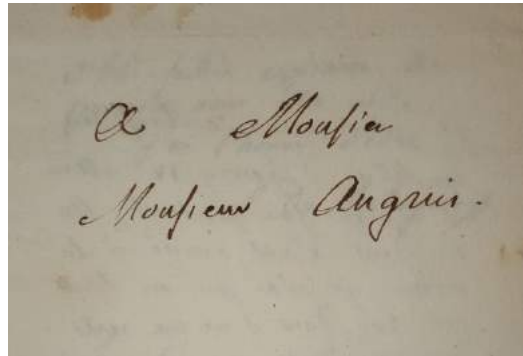 A Monsieu
Monsieur Auguis.